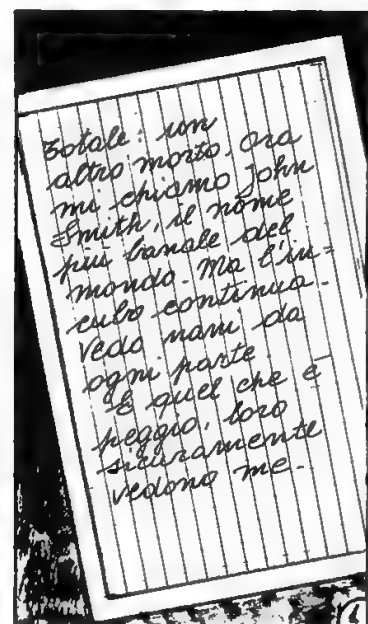 Totale: un
altro morto. Ora
mi chiamo John
Smith, il nome
più banale del
mondo. Ma l'in=
cubo continua.
Vedo nani da
ogni parte
E quel che è
peggio, loro
sicuramente
vedono me.